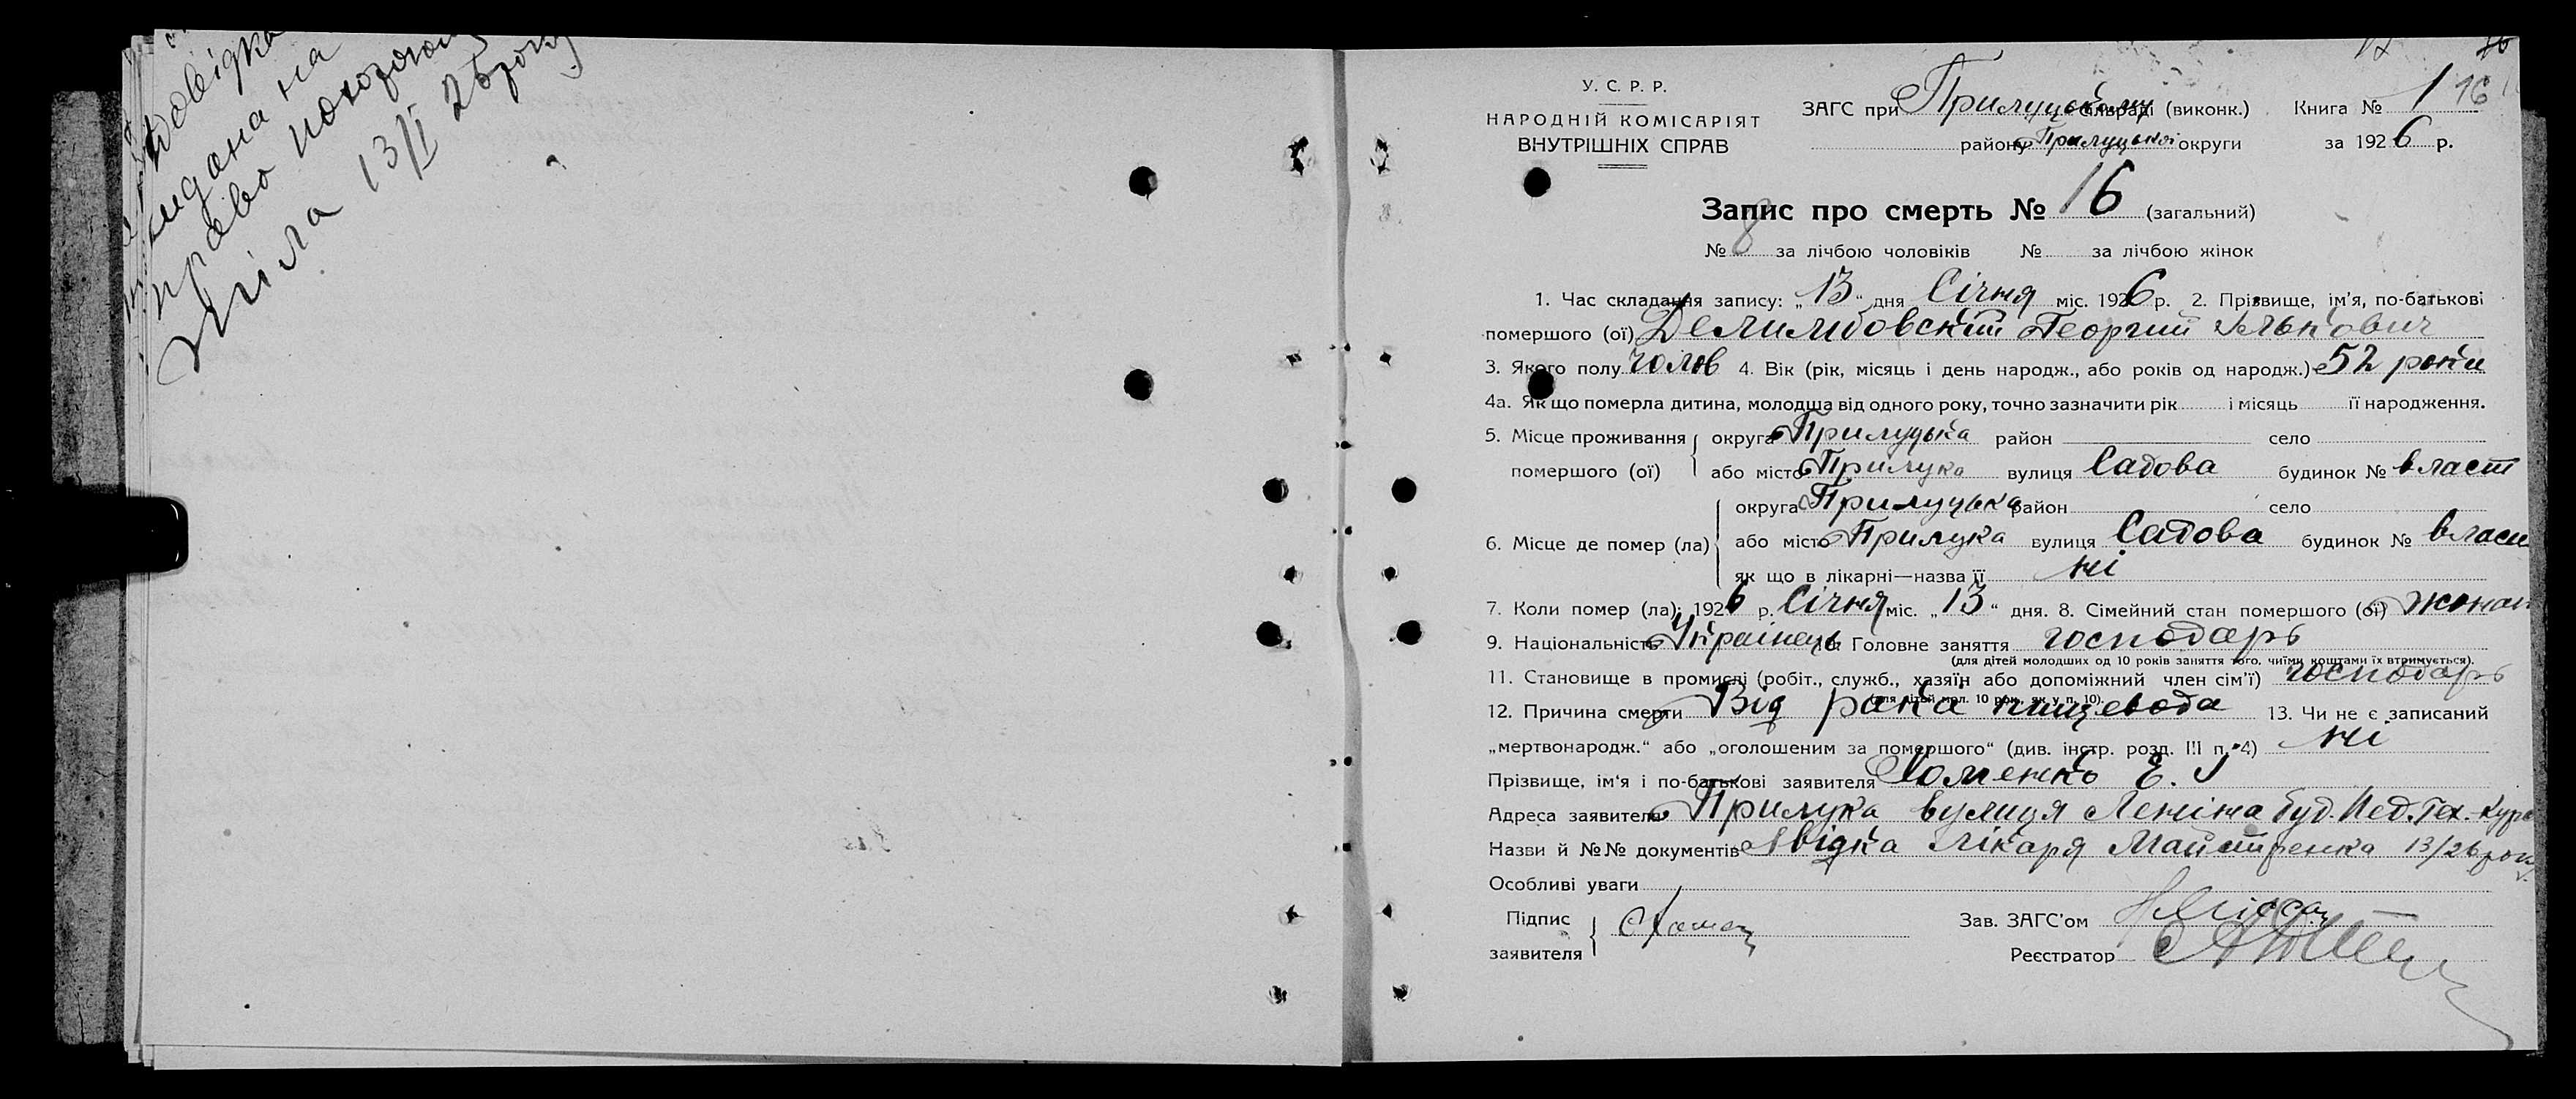 Довідка
видана на
право похорону
тіла 13/I 26 року
У. С. Р. Р.
НАРОДНІЙ КОМІСАРІЯТ
ВНУТРІШНІХ СПРАВ
ЗАГС при Прилуцькому сільраді (виконк.) Книга № 1 16
району Прилуцької округи за 1926 р.
Запис про смерть № 16 (загальний)
№ 8 за лічбою чоловіків № за лічбою жінок
1. Час складання запису: „13“ дня Січня міс. 1926 р. 2. Прізвище, ім'я, по-батькові
помершого (ої) Георгий
3. Якого полу чолов 4. Вік (рік, місяць і день народж., або років од народж.) 52 роки
4а. Як що померла дитина, молодша від одного року, точно зазначити рік і місяць її народження.
5. Місце проживання округа Прилуцька район село
помершого (ої) або місто Прилука вулиця Садова будинок № власт
6. Місце де помер (ла) округа Прилуцька район село
або місто Прилука вулиця Садова будинок № власн
як що в лікарні—назва її ні
7. Коли помер (ла): 1926 р. Січня міс. „13“ дня. 8. Сімейний стан помершого (ої) жонат
9. Національність Українець 10. Головне заняття господарь
(для дітей молодших од 10 років заняття того, чиїми коштами їх втримується).
11. Становище в промислі (робіт., служб., хазяїн або допоміжний член сім'ї) господарь
(для дітей мол. 10 рок. як у п. 10).
12. Причина смерти Від рака пищевода 13. Чи не є записаний
„мертвонародж.“ або „оголошеним за помершого“ (див. інстр. розд. III п. 4) ні
Прізвище, ім'я і по-батькові заявителя Хоменко Е.
Адреса заявителя Прилука вулиця Леніна буд. Пед. Тех. Курс
Назви й №№ документів Звідка лікаря Майстренка 13/26 рок
Особливі уваги
Підпис
заявителя
Зав. ЗАГС'ом
Реєстратор